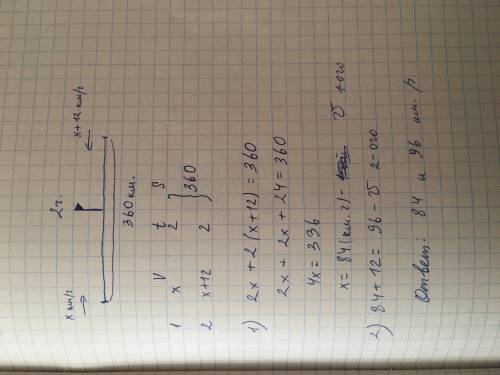 x км/г 2г. x+12 км/г
360 км.
V t S
1 x 2
360
2 x+12 2
1) 2x + 2(x+12) = 360
2x + 2x + 24 = 360
4x = 336
x = 84 (км.г) - V 1-ого
2) 84 + 12 = 96 - V 2-ого
Ответ: 84 и 96 км./г